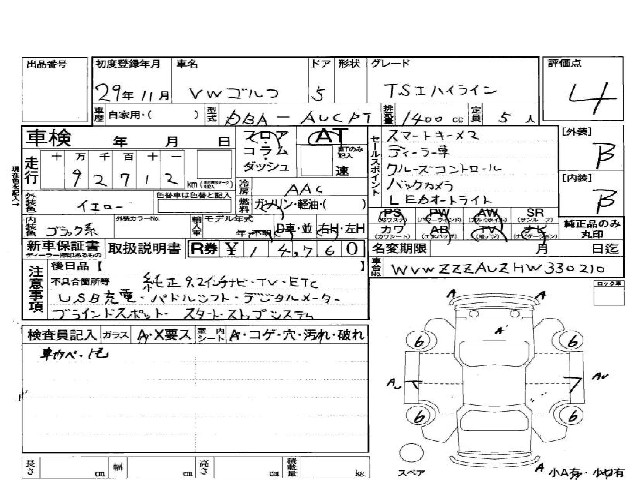 出品番号 初度登録年月 車名 ドア 形状 グレード 評価点
29年11月 VWゴルフ 5 TSIハイライン 4
車歴 自家用・( ) 型式 DBA-AUCPT 排気量 1400cc 定員 5人
車検 年 月 日 フロア・コラム・ダッシュ AT 速
走行 十万千百十一 92712 km
セールスポイント
スマートキー×2
ディーラー車
クルーズコントロール
バックカメラ
LEDオートライト
[外装] B
[内装] B
冷房 AAC
外装色 イエロー 色替車は色替と記入 燃料 ガソリン・軽油・( )
PS PW AW SR
カワ AB TV ナビ
純正品のみ丸印
内装色 ブラック系 外装カラーNo. 輸入車 モデル年式 年・不明 D車・並 右H・左H
新車保証書 取扱説明書 R券 ¥14,760 名変期限 月 日迄
注意事項
後日品【
不具合箇所等
純正9.2インチナビ・TV・ETC
USB充電・パドルシフト・デジタルメーター
ブラインドスポット スタートストップシステム
車台No. WVWZZZAUZHW330210
検査員記入 ガラス A・X要ス 室内シート A・コゲ・穴・汚れ・破れ
ロック車
A A
A'
6 6
AU AU
7
6 6
スペア A A
小A有・小凹有
長さ cm 幅 cm 高さ cm 積載量 kg